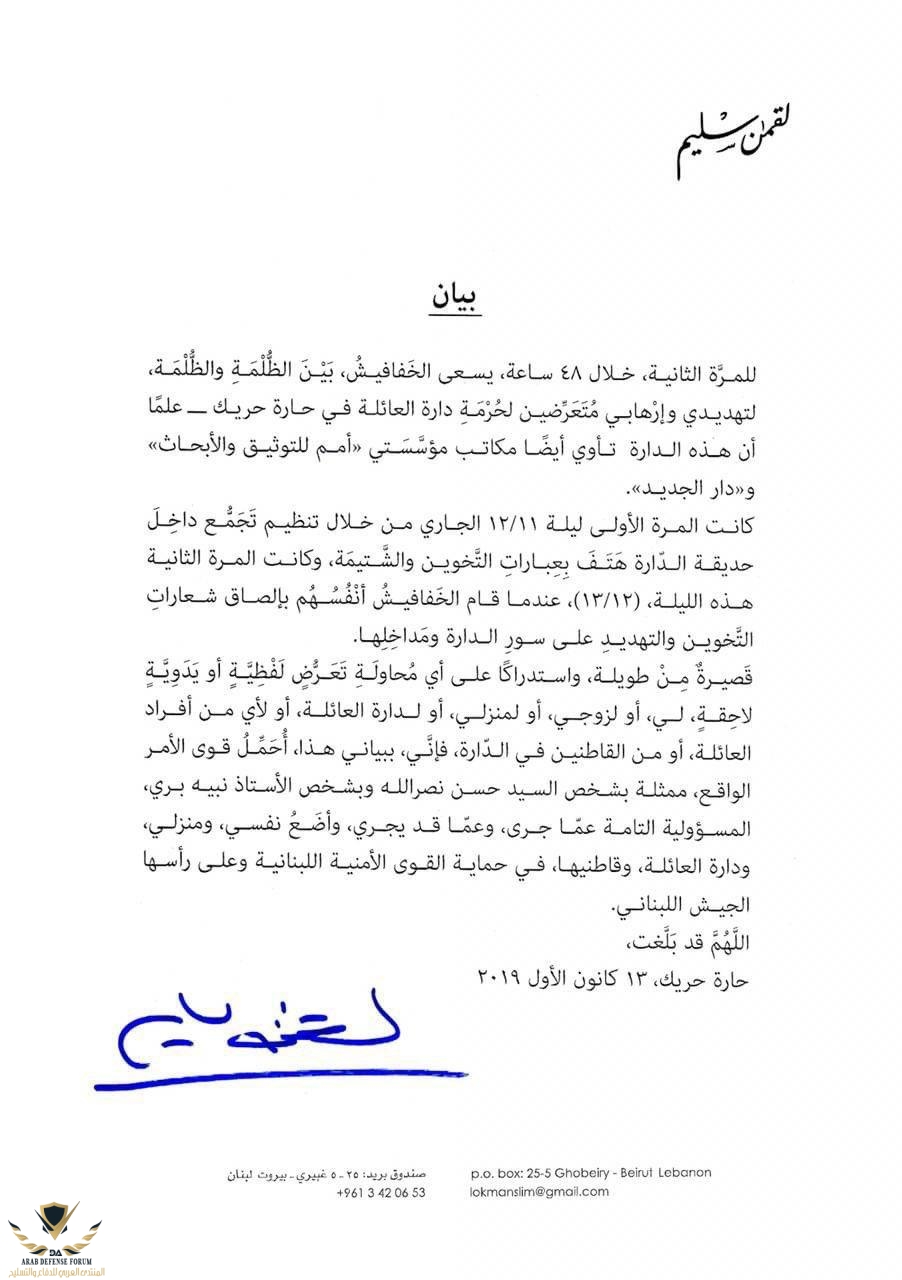 لقمٰن سليم
بيان
للمرَّة الثانية، خلال ٤٨ ساعة، يسعى الخَفافيشُ، بَيْنَ الظُّلْمَةِ والظُّلْمَة،
لتهديدي وإرْهابي مُتَعَرِّضين لحُرْمَةِ دارة العائلة في حارة حريك ـ علمًا
أن هذه الدارة تأوي أيضًا مكاتب مؤسَّسَتي «أمم للتوثيق والأبحاث»
و«دار الجديد».
كانت المرة الأولى ليلة ١٢/١١ الجاري من خلال تنظيم تَجَمُّع داخِلَ
حديقة الدّارة هَتَفَ بِعِباراتِ التَّخوين والشَّتيمَة، وكانت المرة الثانية
هذه الليلة، (١٣/١٢)، عندما قام الخَفافيشُ أنْفُسُهُم بإلصاق شعاراتِ
التَّخوين والتهديدِ على سورِ الدارة ومَداخِلِها.
قَصيرةٌ مِنْ طويلة، واستدراكًا على أي مُحاولَةِ تَعَرُّضٍ لَفْظِيَّةٍ أو يَدَوِيَّةٍ
لاحِقةٍ، لي، أو لزوجي، أو لمنزلي، أو لدارة العائلة، أو لأي من أفراد
العائلة، أو من القاطنين في الدّارة، فإنَّي، ببياني هذا، أُحَمِّلُ قوى الأمر
الواقع، ممثلة بشخص السيد حسن نصرالله وبشخص الأستاذ نبيه بري،
المسؤولية التامة عمّا جرى، وعمّا قد يجري، وأضَعُ نفسي، ومنزلي،
ودارة العائلة، وقاطنيها، في حماية القوى الأمنية اللبنانية وعلى رأسها
الجيش اللبناني.
اللَّهُمَّ قد بَلَّغت،
حارة حريك، ١٣ كانون الأول ٢٠١٩
لقمٰن سليم
صندوق بريد: ٢٥ - ٥ غبيري - بيروت لبنان
+961 3 42 06 53
p.o. box: 25-5 Ghobeiry - Beirut Lebanon
lokmanslim@gmail.com
DA
ARAB DEFENSE FORUM
المنتدى العربي للدفاع والتسليح